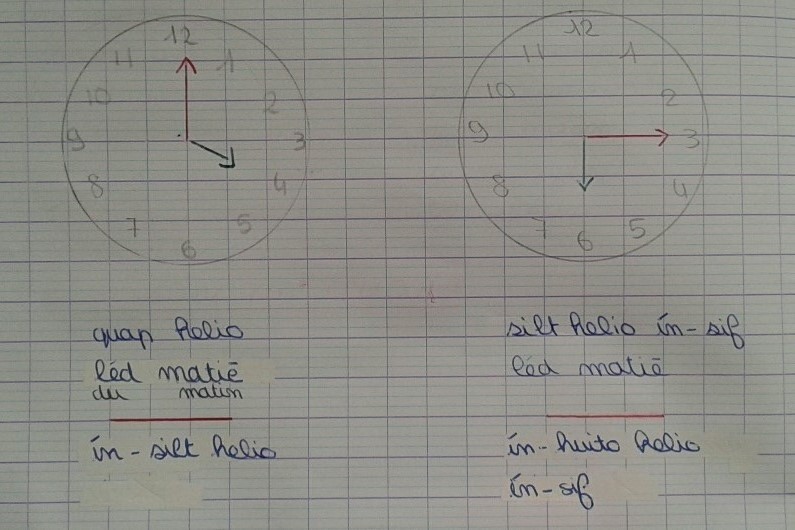 12
11 1
10 2
9 3
8 4
7 5
6
12
11 1
10 2
9 3
8 4
7 5
6
quap helio
léd matiē
du matin
ín-silt helio
silt helio ín-sif
léd matiē
ín-huito helio
ín-sif